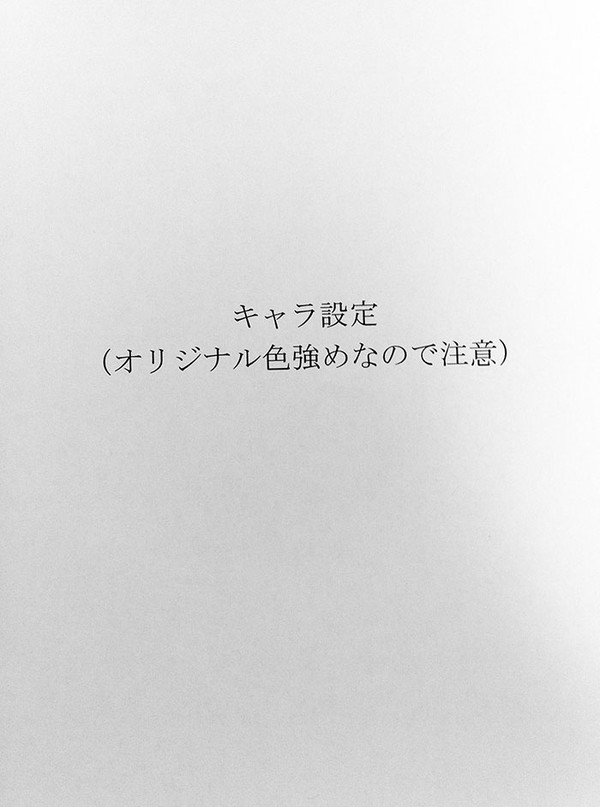 キャラ設定
（オリジナル色強めなので注意）